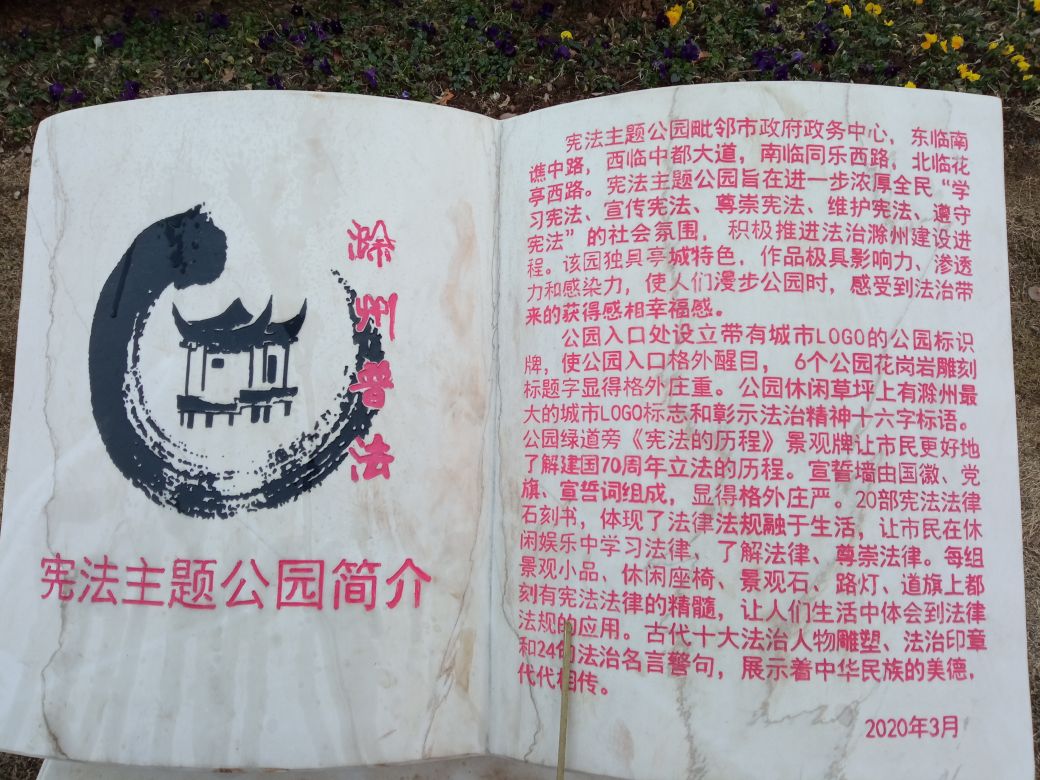 滁州普法
宪法主题公园简介
宪法主题公园毗邻市政府政务中心，东临南
谯中路，西临中都大道，南临同乐西路，北临花
亭西路。宪法主题公园旨在进一步浓厚全民“学
习宪法、宣传宪法、尊崇宪法、维护宪法、遵守
宪法”的社会氛围，积极推进法治滁州建设进
程。该园独具亭城特色，作品极具影响力、渗透
力和感染力，使人们漫步公园时，感受到法治带
来的获得感相幸福感。
公园入口处设立带有城市LOGO的公园标识
牌，使公园入口格外醒目，6个公园花岗岩雕刻
标题字显得格外庄重。公园休闲草坪上有滁州最
大的城市LOGO标志和彰示法治精神十六字标语。
公园绿道旁《宪法的历程》景观牌让市民更好地
了解建国70周年立法的历程。宣誓墙由国徽、党
旗、宣誓词组成，显得格外庄严。20部宪法法律
石刻书，体现了法律法规融于生活，让市民在休
闲娱乐中学习法律、了解法律、尊崇法律。每组
景观小品、休闲座椅、景观石、路灯、道旗上都
刻有宪法法律的精髓，让人们生活中体会到法律
法规的应用。古代十大法治人物雕塑、法治印章
和24句法治名言警句，展示着中华民族的美德，
代代相传。
2020年3月